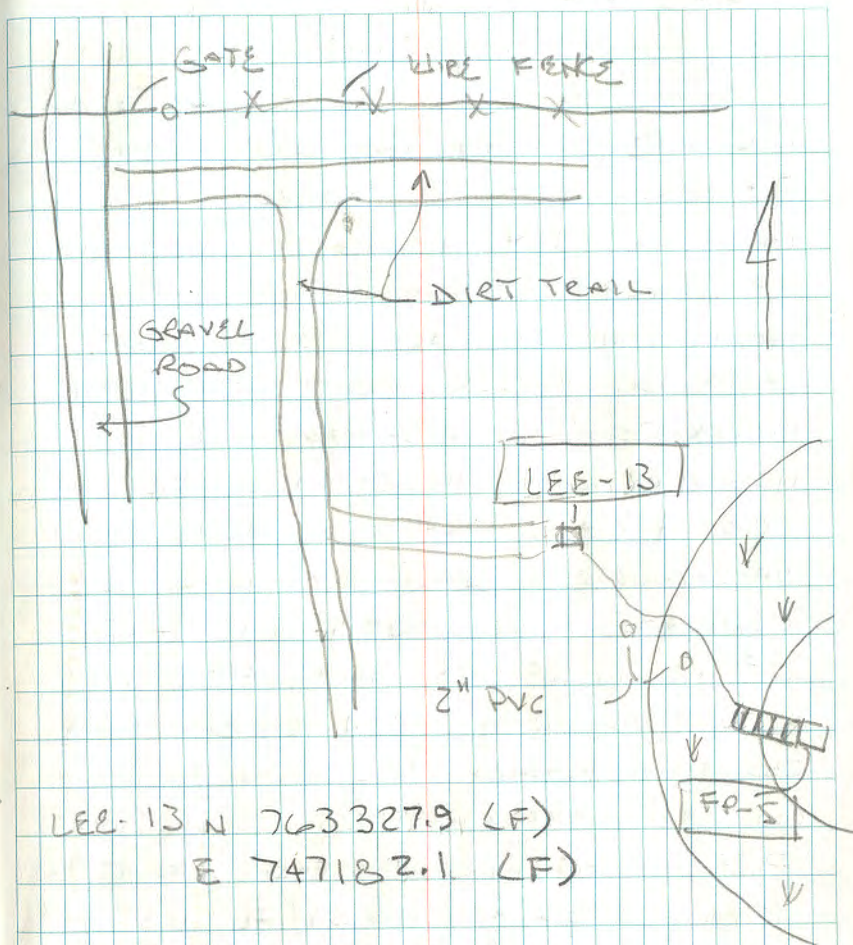 GATE
WIRE FENCE
DIRT TRAIL
GRAVEL
ROAD
LEE-13
2" PVC
FP-5
LEE-13 N 763327.9 (F)
E 747182.1 (F)